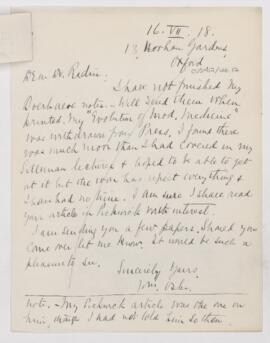 16. VII. 18.
13, Norham Gardens
Oxford
Dear Dr.
I have not finished my
notes. Will send them when
printed. My "Evolution of Mod. Medicine"
was withdrawn from Press, I found there
was much more than I had covered in my
Silliman lectures & hoped to be able to get
at it but the war has upset everything &
I have had no time. I am sure I shall read
your article in with interest.
I am sending you a few papers. Should you
come over let me know. It would be such a
pleasure to see.
Sincerely Yours,
Wm. Osler.
note. - My article was the one on
him, I had not told him so then.